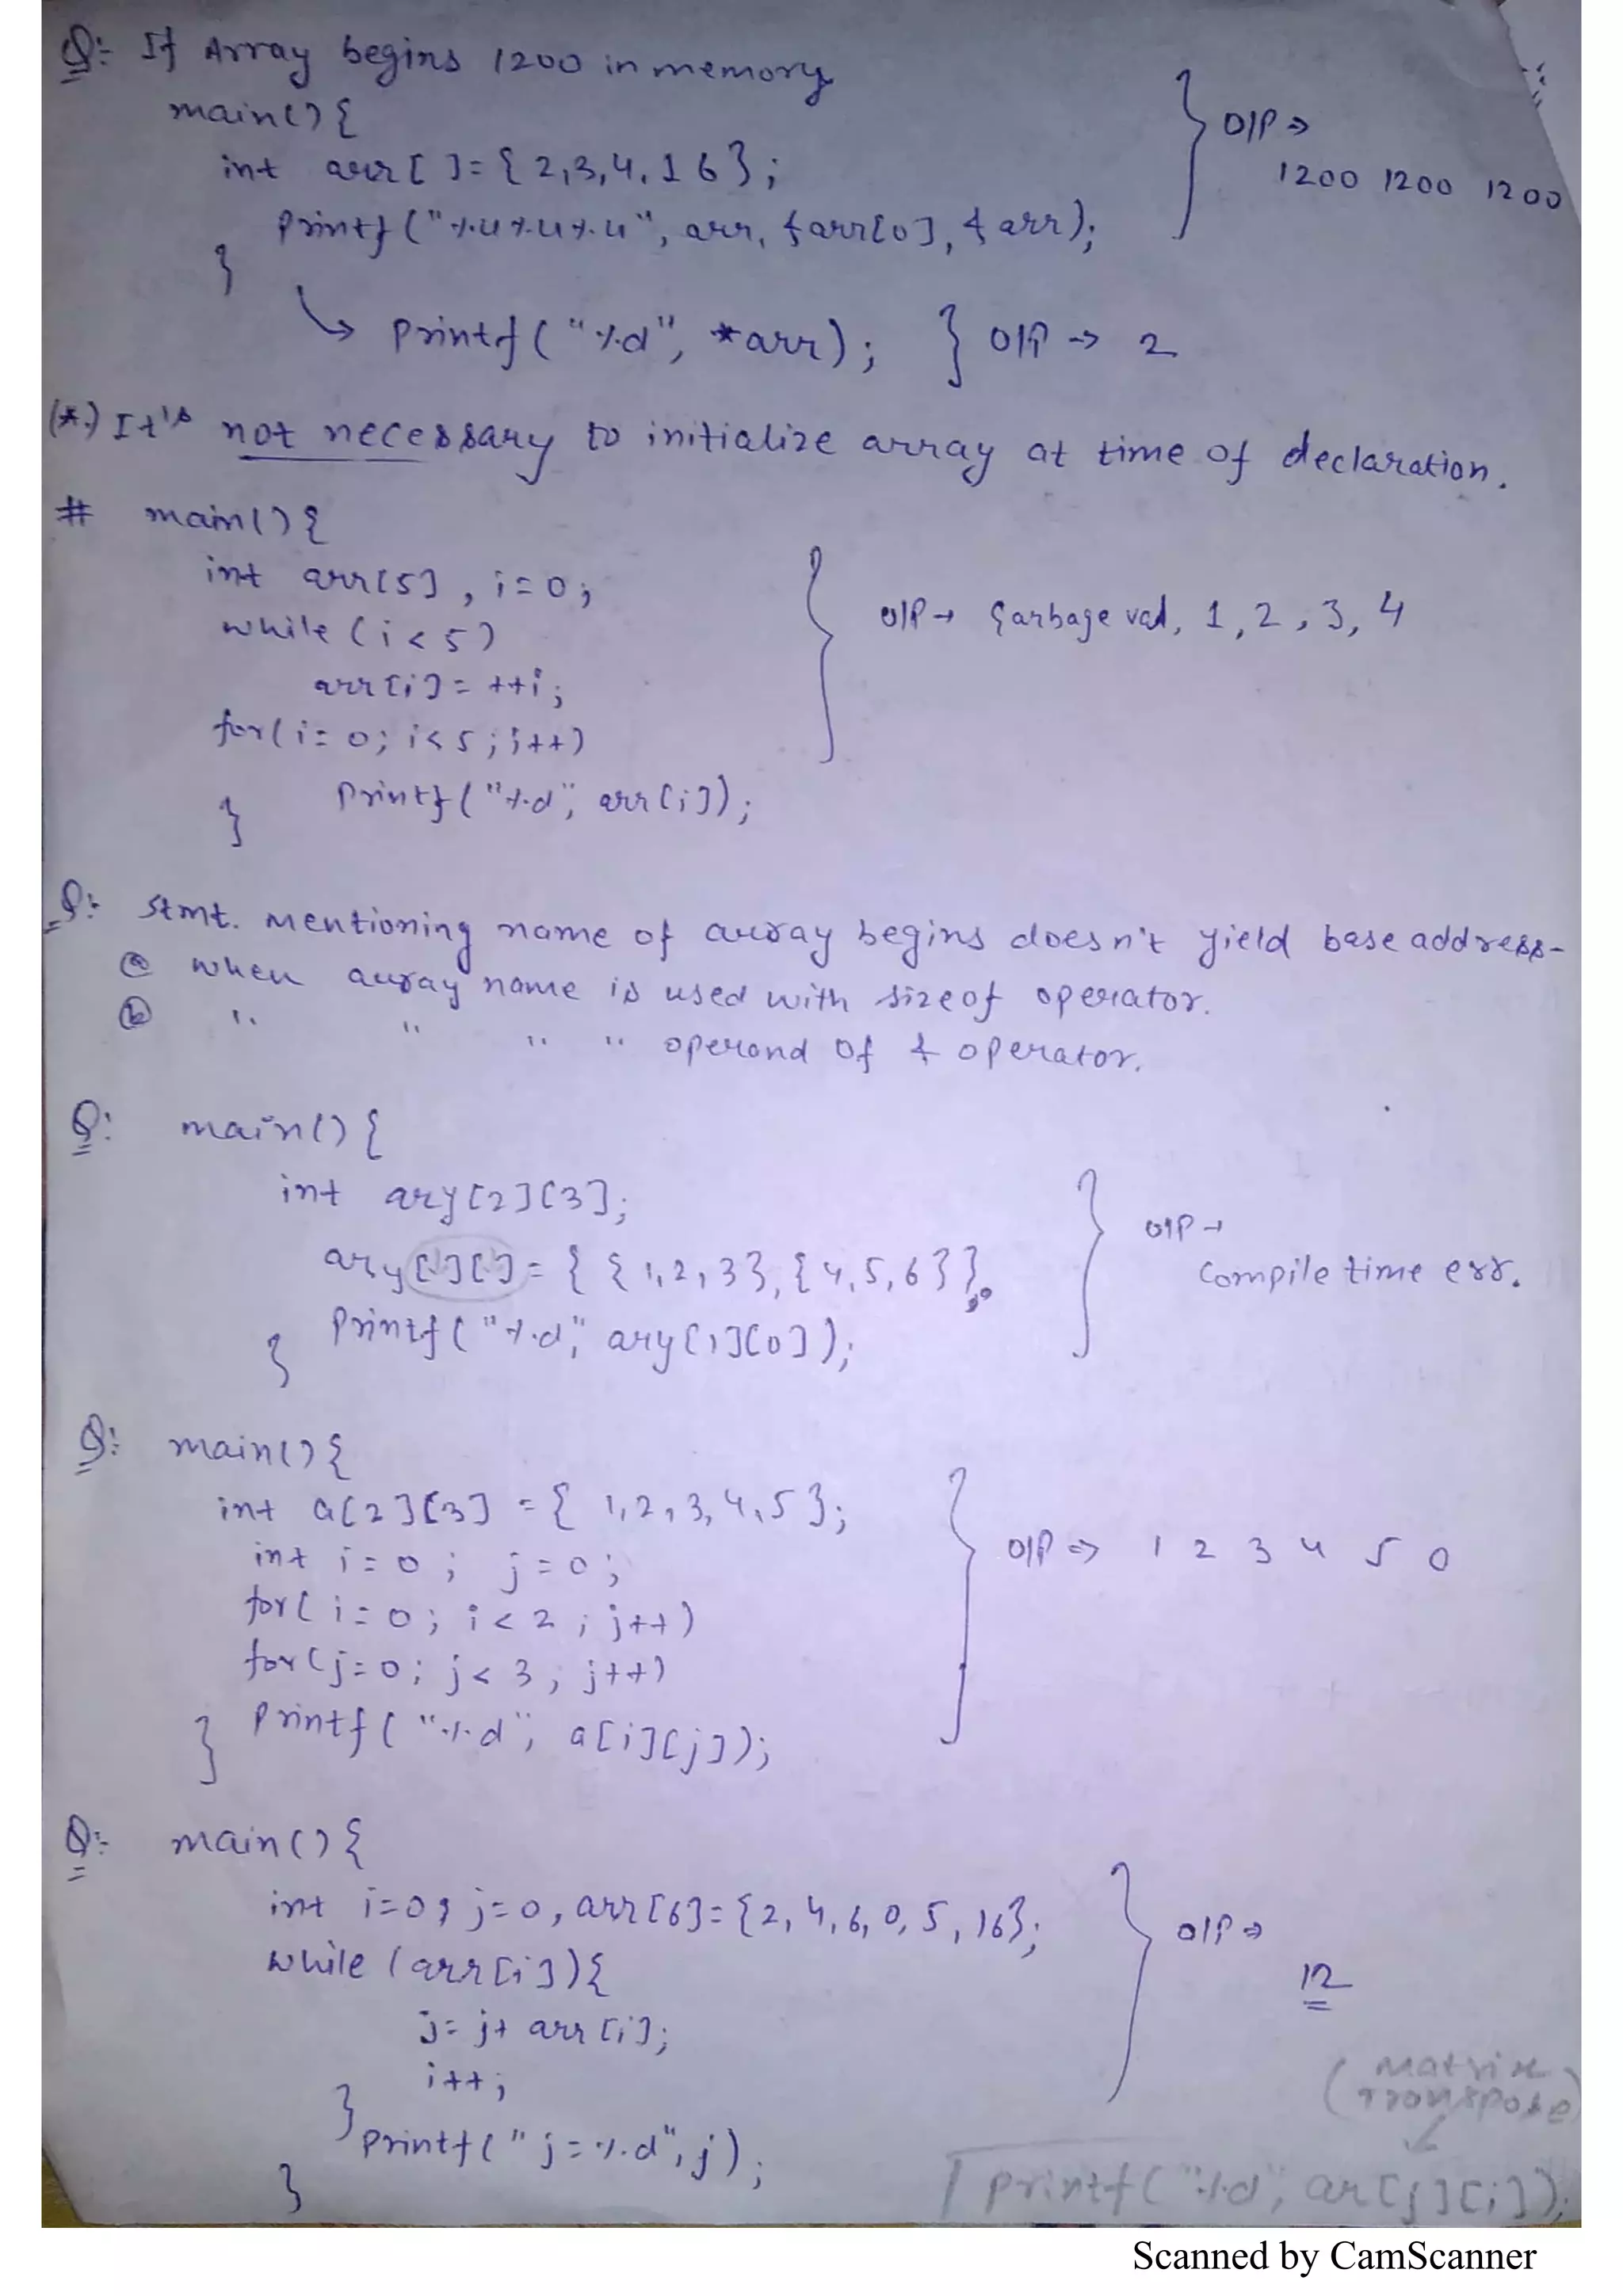 Q:- If Array begins 1200 in memory
main(){
int arr[ ]={2,3,4,16};
printf("%u%u%u", arr, &arr[0], &arr);
}
O/P ⇒
1200 1200 1200
↳ printf("%d", *arr); } O/P → 2
(*.) It's not necessary to initialize array at time of declaration.
# main(){
int arr[5], i=0;
while(i<5)
arr[i]=++i;
for(i=0; i<5; i++)
printf("%d", arr[i]);
}
O/P → Garbage val, 1, 2, 3, 4
Q:- Stmt. mentioning name of array begins doesn't yield base address-
(a) when array name is used with sizeof operator.
(b) " " " " operand of & operator.
Q: main(){
int ary[2][3];
ary[ ][ ]={{1,2,3},{4,5,6}};
printf("%d", ary[1][0]);
}
O/P →
Compile time err.
Q: main(){
int a[2][3] = {1,2,3,4,5};
int i=0; j=0;
for(i=0; i<2; j++)
for(j=0; j<3; j++)
printf("%d", a[i][j]);
}
O/P ⇒ 1 2 3 4 5 0
Q:- main(){
int i=0, j=0, arr[6]={2,4,6,0,5,16};
while(arr[i]){
j=j+arr[i];
i++;
}
printf("j=%d", j);
}
O/P ⇒
12
(matrix
transpose)
printf("%d", ar[j][i]);
Scanned by CamScanner